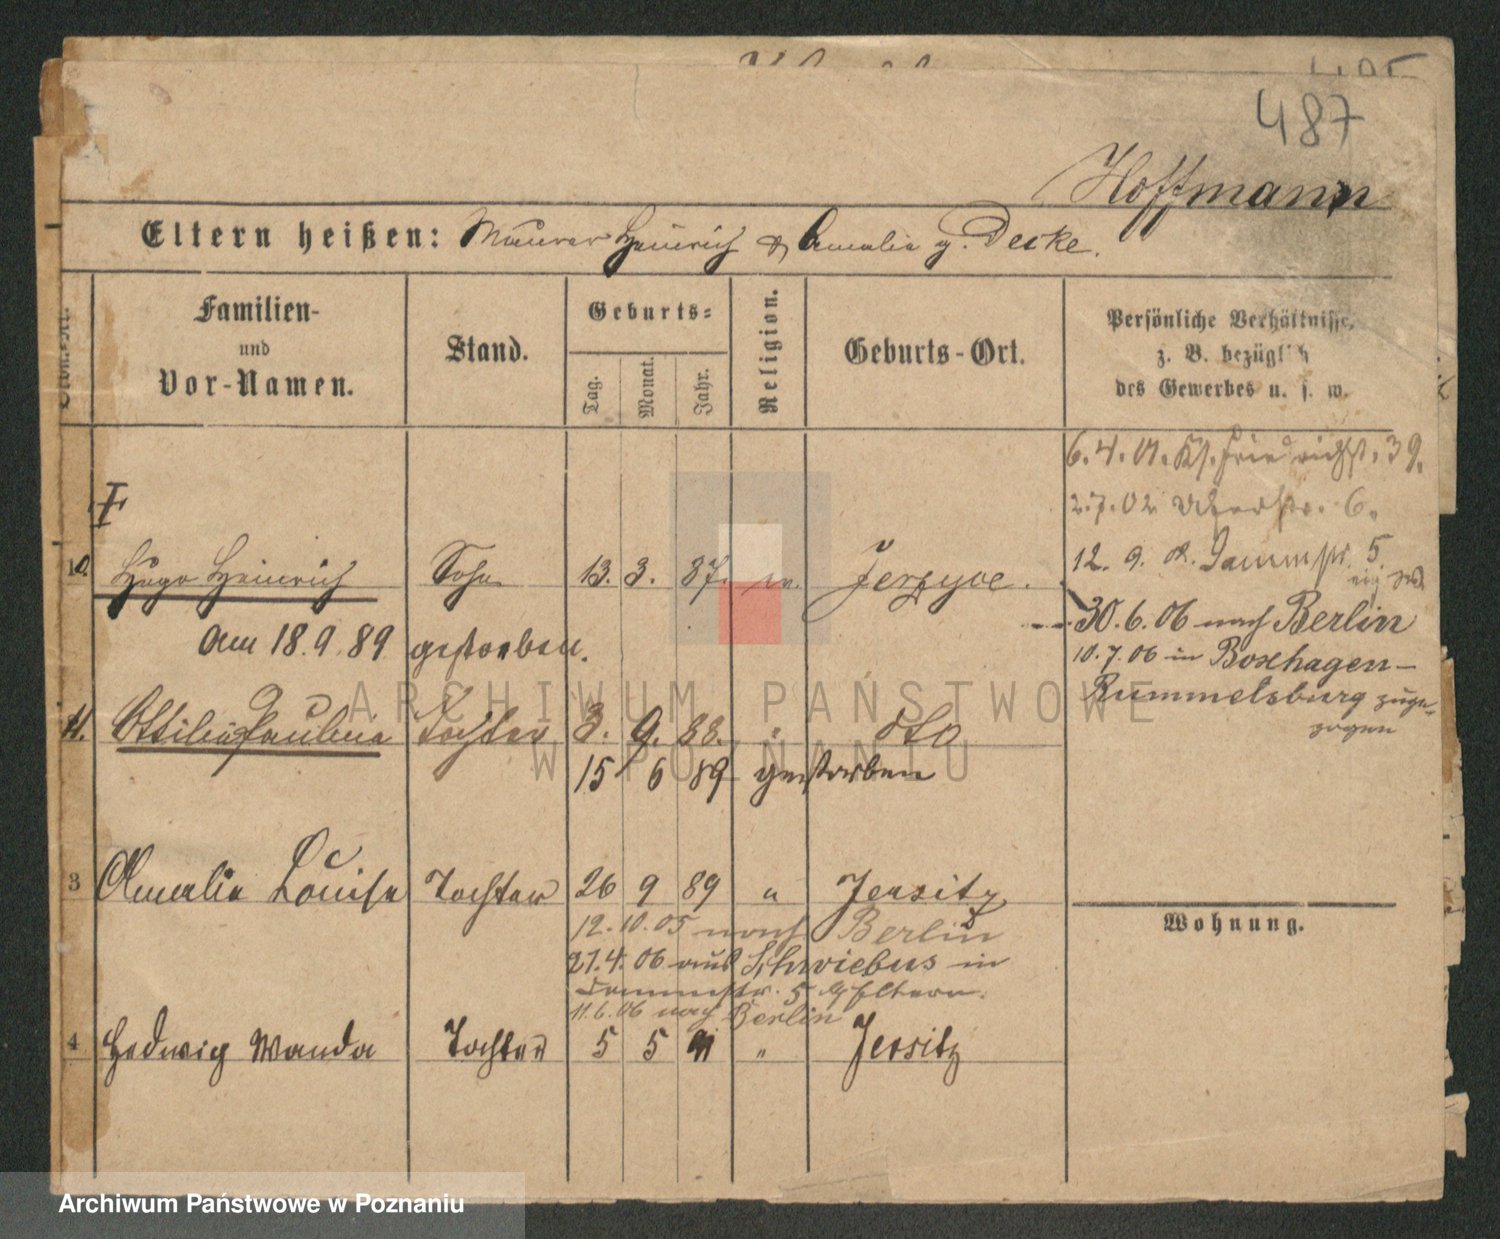 487
Hoffmann
Eltern heißen: Maurer Heinrich & Amalie g. Decke.
Familien-
und
Vor-Namen.
Stand.
Geburts-
Tag.
Monat.
Jahr.
Religion.
Geburts-Ort.
Persönliche Verhältnisse,
z. B. bezüglich
des Gewerbes u. s. w.
6. 4. 01. Friedrichst. 39.
2. 7. 02 6.
12. 9. Dammstr. 5.
10. Hugo Heinrich Sohn 13. 3. 87. Jerzyce.
30. 6. 06 nach Berlin
am 18. 9. 89 gestorben.
10. 7. 06 in Boxhagen-
Rummelsburg zuge-
zogen
11. Ottilie Paulina Tochter 3. 9. 88. " dto
15 6 89 gestorben
3 Amalie Louise Tochter 26 9 89 " Jersitz
12. 10. 05 nach Berlin
21. 4. 06 aus Schwiebus in
Dammstr. 5 Eltern.
11. 6. 06 nach Berlin
4 Hedwig Wanda Tochter 5 5 91 " Jersitz
Wohnung.
ARCHIWUM PAŃSTWOWE
W POZNANIU
Archiwum Państwowe w Poznaniu